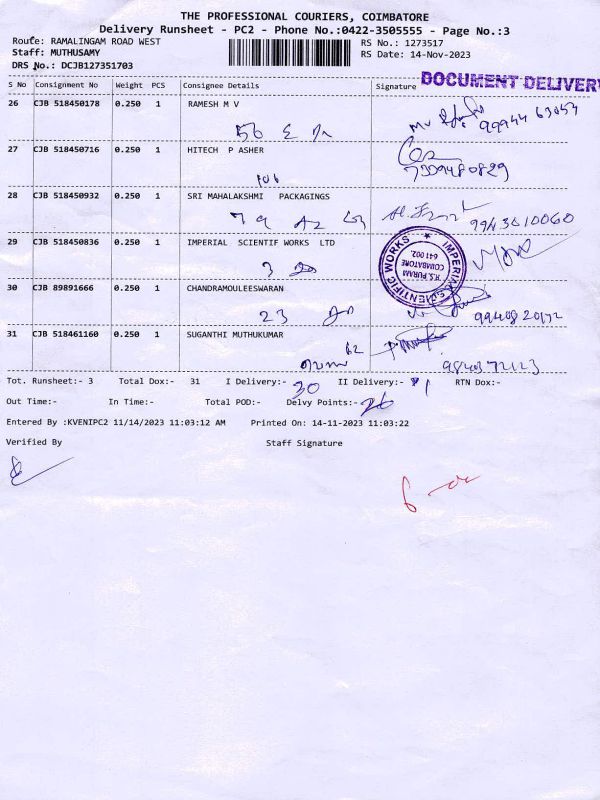 THE PROFESSIONAL COURIERS, COIMBATORE
Delivery Runsheet - PC2 - Phone No.:0422-3505555 - Page No.:3
Route: RAMALINGAM ROAD WEST RS No.: 1273517
Staff: MUTHUSAMY RS Date: 14-Nov-2023
DRS No.: DCJB127351703
S No Consignment No Weight PCS Consignee Details Signature DOCUMENT DELIVERY
26 CJB 518450178 0.250 1 RAMESH M V
56 99944 63054
27 CJB 518450716 0.250 1 HITECH P ASHER
7309480829
106
28 CJB 518450932 0.250 1 SRI MAHALAKSHMI PACKAGINGS
79 9943010060
29 CJB 518450836 0.250 1 IMPERIAL SCIENTIF WORKS LTD
IMPERIAL SCIENTIFIC WORKS
R.S. PURAM
COIMBATORE
641 002.
30 CJB 89891666 0.250 1 CHANDRAMOULEESWARAN
23
31 CJB 518461160 0.250 1 SUGANTHI MUTHUKUMAR
62
9840372123
Tot. Runsheet:- 3 Total Dox:- 31 I Delivery:- 30 II Delivery:- 1 RTN Dox:-
Out Time:- In Time:- Total POD:- Delvy Points:- 26
Entered By :KVENIPC2 11/14/2023 11:03:12 AM Printed On: 14-11-2023 11:03:22
Verified By Staff Signature